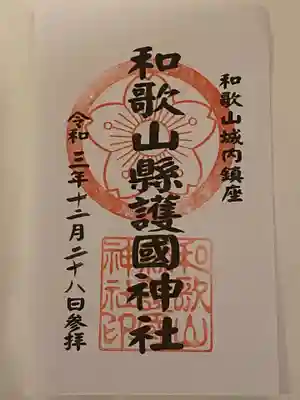 和歌山城内鎮座
和歌山縣護國神社
令和三年十二月二十八日参拝
和歌山
縣護國
神社印